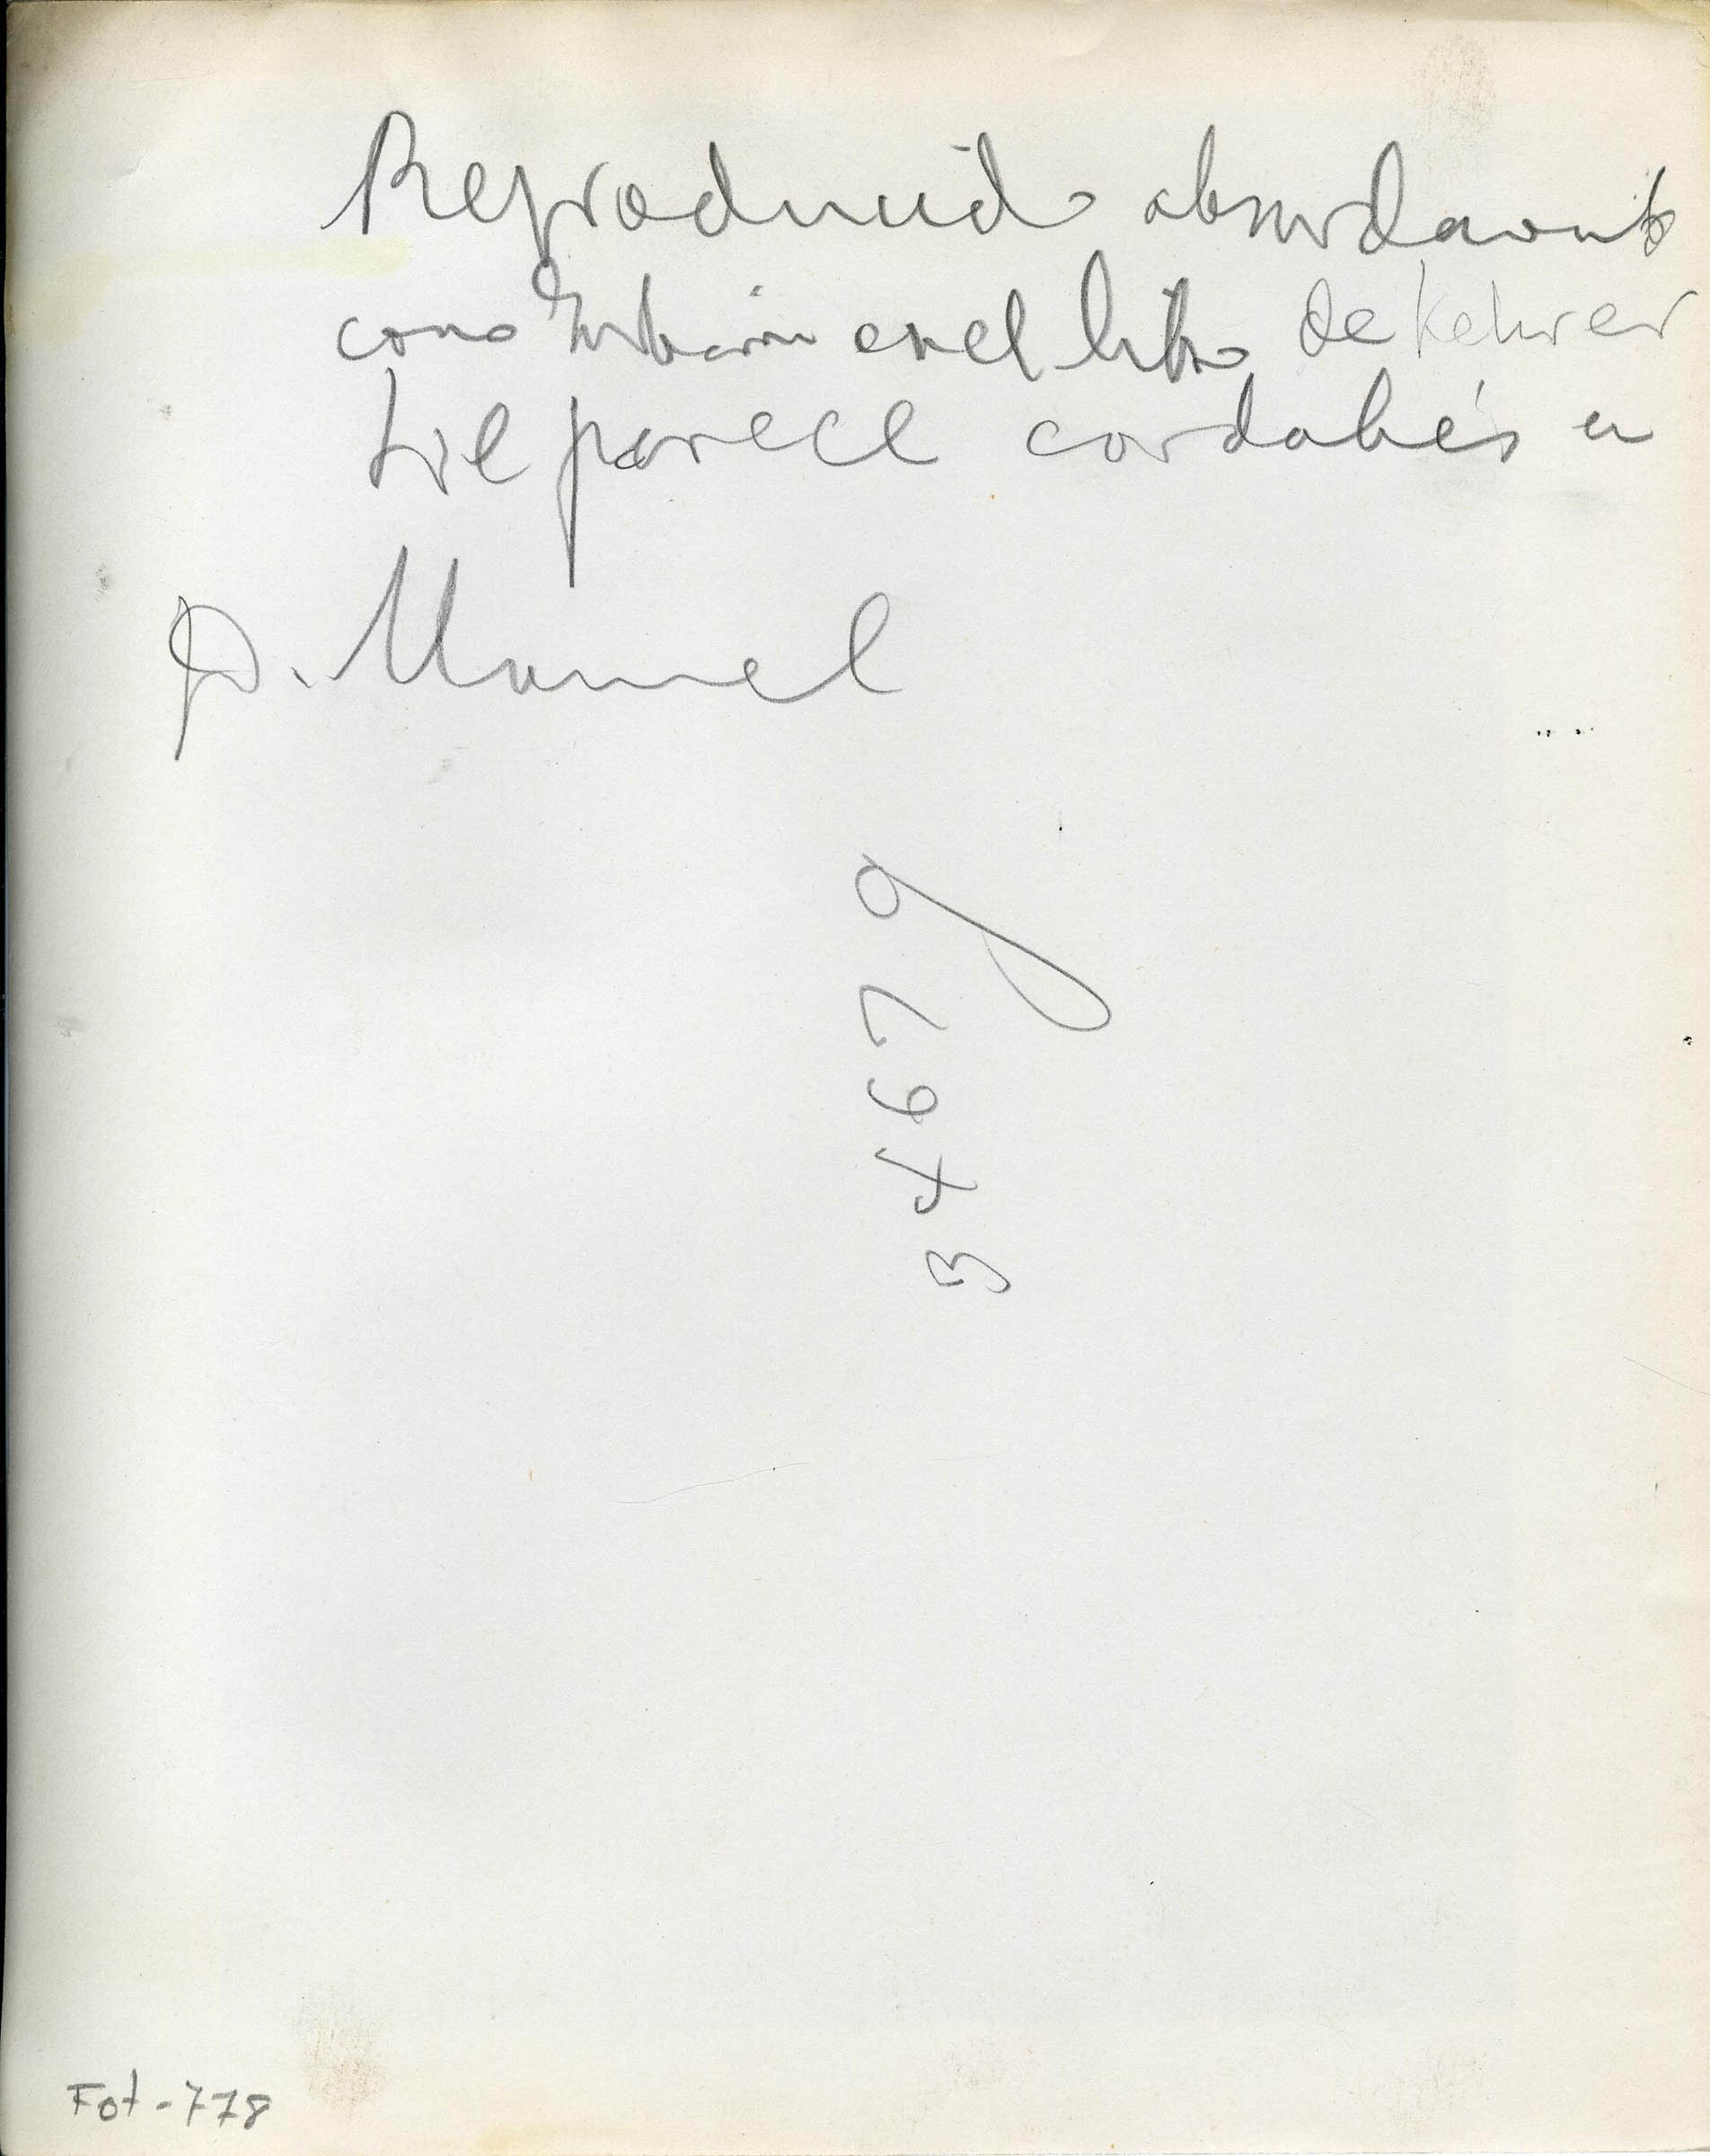 Reproducido absurdamente
como Zurbarán en el libro de Kehrer
Le parece cordobés a
D. Manuel
34679
Fot-778